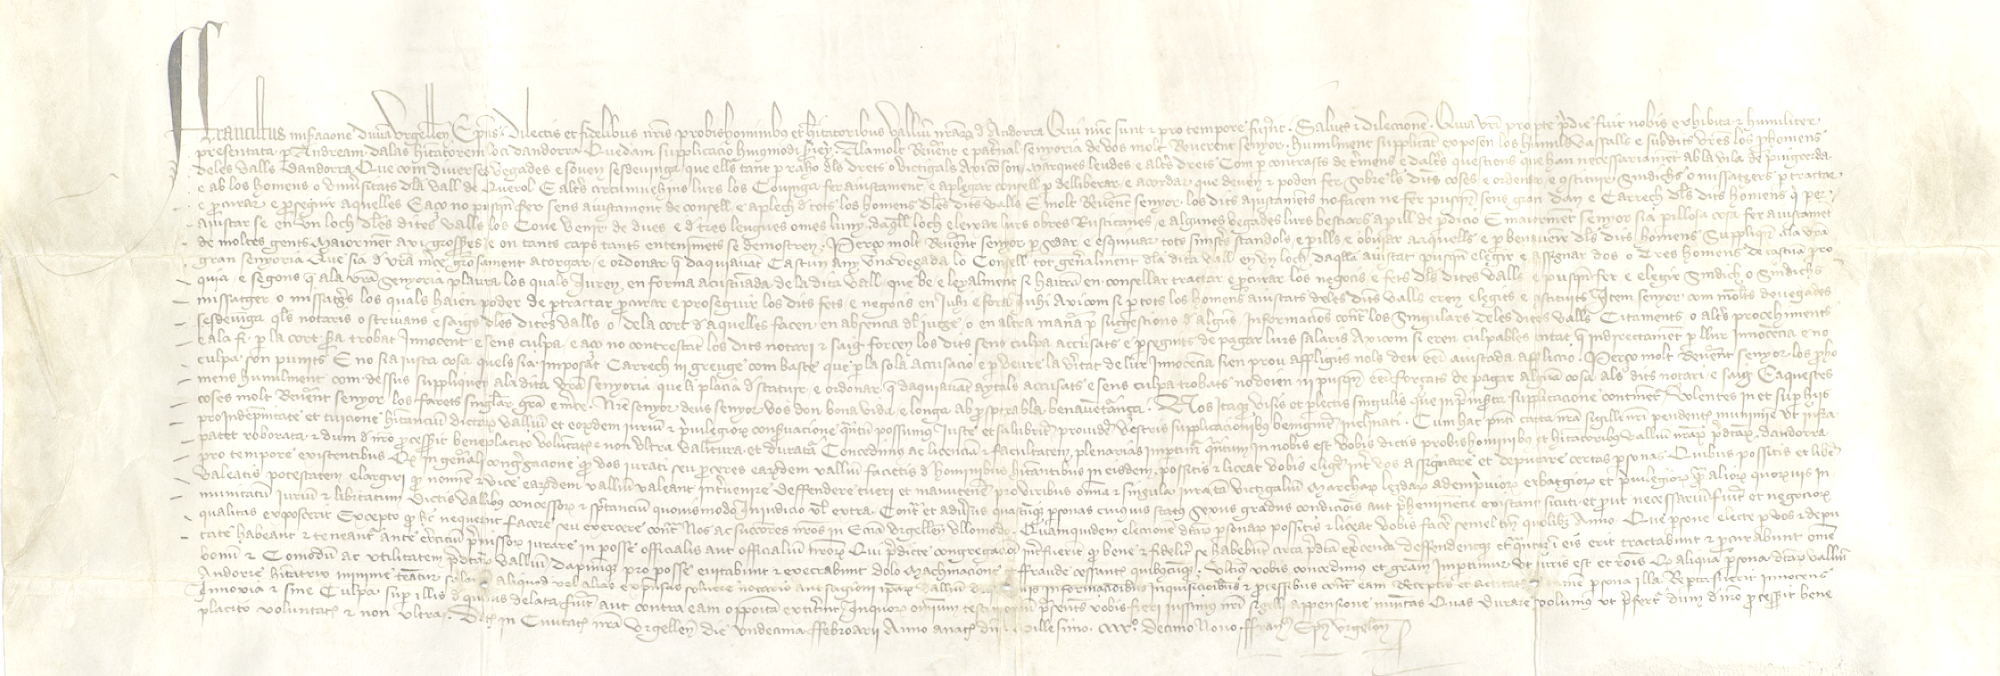 Franciscus miseracione divina Urgellen Epus. Dilectis et fidelibus nris probis hominibus et hitatoribus vallium nrarum d Andorra Qui nunc sunt & pro tempore fuerint. Salute & dileccione. Quia vri pro pte pdie fuit nobis exhibita & humiliter
presentata p Andream dalas hitatorem loci dandorra Quedam supplicacio huiusmodi seriey. Alamolt Revent e paternal senyoria de vos molt Reverent senyor. humilment supplicant exposen los humils vassalls e subdits vres los phomens
deles valls dandorra Que com diverses vegades e soven sesdevinga que ells tant p raho dls drets o victigals axi com son. marques leudes e altres drets Com p contrasts de termens e daltres questions que han necessariament ab la vila de puigcerda
e ab los homens o universitats dla vall de Querol E altres circumvehins lurs los Convinga fer aiustament. e aplegar consell p delliberar. e acordar que deven & poden fer sobre les dites coses e ordenar e constituir Sindichs o missatgers p tractar
e pcurar e pseguir aquelles E aço no pusquen fer sens aiustament de consell e aplech d tots los homens dles dits valls E molt Revent senyor. los dits aiustaments no facen ne fer pusquen sens gran dan e Carrech dls dits homens q per
aiustar se en un loch dles dites valls los Cove venir de dues e d tres lengues o mes luny. daqll loch e leixar lurs obres Rusticanes. e algunes vegades lurs bestiars a pill de pdicio E maiorment senyor sia pillosa cosa fer aiustament
de moltes gents. maiorment axi grosses e on tants caps tants entenements se demostren. Perço molt Revent senyor p squivar. e esquivar tots sinistres scandols e pills e obviar a aquells e p benavenir dls dits homens Suppliquen ala vra
gran senyoria Que sia d vra merce graciosament atorgar e ordonar q daquiavat Cascun any una vegada lo Consell tot generalment dla dita vall en un loch daqlla aiustat pusquen elegir e assignar dos o Tres homens de cascuna pro
quia e segons q ala vra Senyoria plaura los quals Juren, en forma acustumada de la dita vall que be e leyalment se hauran en consellar tractar e pcurar los negocis e fets dls dites valls e pusquen fer e elegir Sindich o Sindichs
missatger o missatgers los quals haien poder de ptractar pcurar e proseguir los dits fets e negocis en Juhi e fora Juhi Axi com si p tots los homens aiustats deles dits valls eren elegits e constituits Item senyor com moltes de vegades
sesdevinga qls notaris o scrivans e saigs dles dites valls o dela cort d aquelles facen en absencia dl jutge o en altra manera p suggestions d alguns. Informacions contra los Singulars deles dites valls Citaments o altres procehiments
e ala fi p la cort sera trobat Innocent e sens culpa. e aço no contrestant los dits notari & saig forcen los dits sens culpa accusats e perseguits de pagar lurs salaris Axi com si eren culpables entat q indirectament p llur innocencia e no
culpa son punits E no sia iusta cosa quels sia imposat Carrech ni greuge com baste que p la sola accusacio e p deure la vitat de lur Innocencia sien prou affligits nols deu eer aiustada afflicio. Perço molt Revent senyor los pho
mens humilment com dessus suppliquen ala dita vra senyoria que li placia d statuir. e ordonar q daquiavant aytals accusats e sens culpa trobats no deien ni pusquen eer forçats de pagar alguna cosa als dits notari e saig E aquestes
coses molt Revent senyor los farets singular gra e merce. Nre senyor deus senyor vos don bona vida e longa ab pspirable benauenturança. Nos Itaque visis et plectis singulis que in pinserta supplicatione continent Volentes in et sup hiis
pro indepnitate et tuicione hitancium dictarum vallium et eorumdem iurium & privilegiorum conservacione quantum possumus Juste et salubriter providere vestris supplicacionibus benigniter inclinati. Cum hac pnti carta nra sigilli nri pendentis munimine ut infra
patet roborata & dum d nro pcesserit beneplacito voluntatis e non ultra valitura et duratura Concedimus ac licencia & facultatem plenarias impartimur quantum in nobis est vobis dictis probis hominibus et hitatoribus vallium nrarum pdictarum dandorra
pro tempore existentibus Quod in generali congregacione quod vos iurati seu pceres earumdem vallium facietis d hominibus hitantibus in eisdem. possitis & liceat vobis eligere inter vos assignare et deputare certas psonas Quibus possitis et libere
valeatis potestatem elargiri quod nomine & vice earumdem vallium valeant invenire deffendere tueri et manutenere pro viribus omnia & singula iura tam victigalium marcharum lezdarum ademprivorum erbatgiorum et privilegiorum quam aliorum quoruvis in
munitatum iurium & libertatum Dictis vallibus concessorum & sptancium quovismodo in iudicio vel extra. Contra et adversus quascumque psonas cuiusvis status sexus gradus condicionis aut pheminencie existant sicuti et prout necessarium fuerit et negociorum
qualitas exposcerit Excepto quod hec nequeant facere seu exercere contra Nos ac successores nros in Ecclesia Urgellen ullomodo. Quamquidem eleccionem dictarum psonarum possitis & liceat vobis facere semel tantum quolibet anno. Que psone electe p vos & depu
tate habeant & teneant ante exerciciu pmissorum iurare in posse officialis aut officialium nrorum Qui pdicte congregacioni inferfuerit quod bene & fideliter se habebunt circa pdicta exercenda deffendenda et quantum in eis erit tractabunt & pcurabunt omne
bonu & Comodum ac utilitatem pdictarum vallium dapnumque pro posse evitabunt & execrabunt dolo machinacione et fraude cessantibus quibuscumque. Ulterius vobis concedimus et gram impartimur ut iuris est et rois Quod aliqua psona dictarum vallium
Andorre hitatrix minime teneatur aliquod vel alias expensas solvere notario aut sagioni ipsarum vallium informacionibus inquisicionibus & pcessibus contra eam receptis et actitatis psona illa Reperta fuerit Innocens
Innoxia & sine Culpa sup illis d quibus delata fuerit aut contra eam opposita extiterint Inquorum omnium testimonium psentes vobis fieri iussimus nri sigilli appensione munitas Quas durare volumus ut pfertur dum d nro pcesserit bene
placito voluntatis & non ultra. Dat in Civitate nra Urgellen die undecima ffebroarii Anno a nativitate dni millesimo. CCCC. decimo Nono. ffranc Eps Urgellen